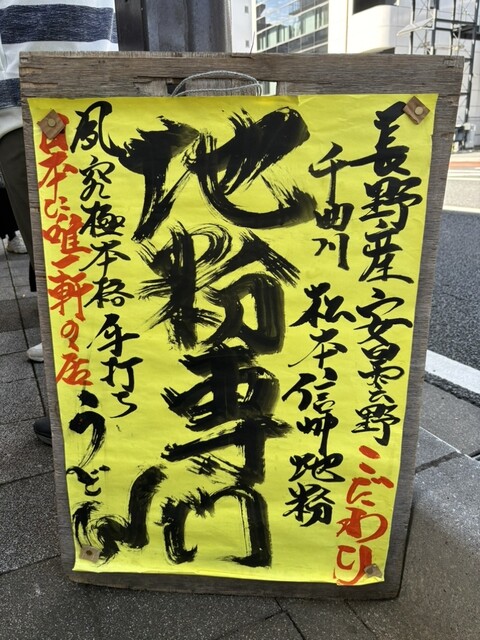 長野産安曇野こだわり
千曲川 松本信州地粉
地粉専門
夙究極本格手打ちうどん
日本に唯一軒の店